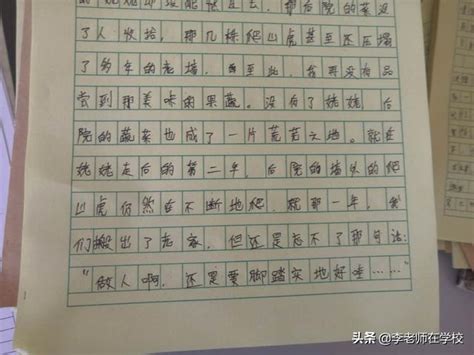 姥姥却没能挺过去。那后院的菜没
了人收拾，那几株爬山虎甚至还压塌
了多年的老墙。自至此，我再没有品
尝到那美味的果蔬。没有了姥姥，后
院的蔬菜也成了一片荒芜之地。就在
姥姥走后的第二年，后院的墙头的爬
山虎仍然在不断地爬。就那一年，我
们搬出了老家，但还是忘不了那句话：
“做人啊，还是要脚踏实地好哇……”
头条 @李老师在学校